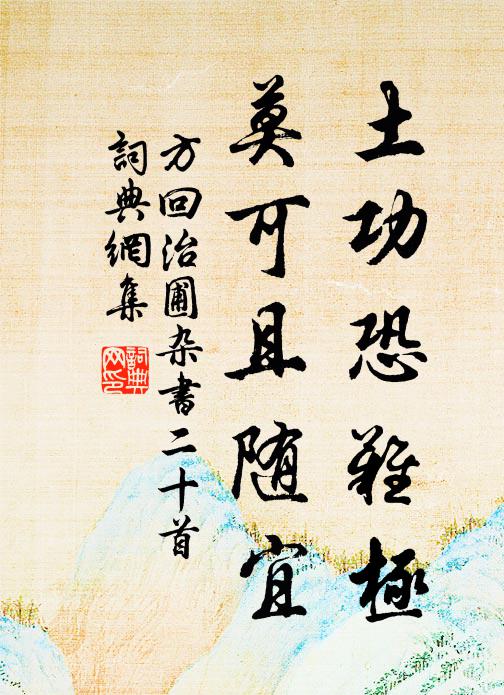 土功恐難極
莫可且随宜
方回治圃杂書二十首
詞典網集
詞典
网印